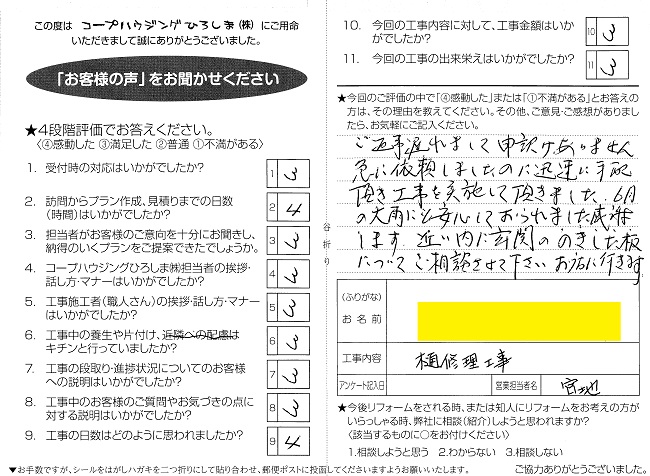 この度は コープハウジングひろしま(株) にご用命
いただきまして誠にありがとうございました。
「お客様の声」をお聞かせください
★4段階評価でお答えください。
〈④感動した ③満足した ②普通 ①不満がある〉
1. 受付時の対応はいかがでしたか?
1 3
2. 訪問からプラン作成、見積りまでの日数
(時間)はいかがでしたか?
2 4
3. 担当者がお客様のご意向を十分にお聞きし、
納得のいくプランをご提案できたでしょうか。
3 3
4. コープハウジングひろしま㈱担当者の挨拶・
話し方・マナーはいかがでしたか?
4 3
5. 工事施工者(職人さん)の挨拶・話し方・マナー
はいかがでしたか?
5 3
6. 工事中の養生や片付け、近隣への配慮は
キチンと行っていましたか?
6 3
7. 工事の段取り・進捗状況についてのお客様
への説明はいかがでしたか?
7 3
8. 工事中のお客様のご質問やお気づきの点に
対する説明はいかがでしたか?
8 3
9. 工事の日数はどのように思われましたか?
9 4
▼お手数ですが、シールをはがしハガキを二つ折りにして貼り合わせ、郵便ポストに投函してくださいますようお願いいたします。
谷折り
10. 今回の工事内容に対して、工事金額はいか
がでしたか?
10 3
11. 今回の工事の出来栄えはいかがでしたか?
11 3
★今回のご評価の中で「④感動した」または「①不満がある」とお答えの
方は、その理由を教えてください。その他、ご意見・ご感想がありまし
たら、お気軽にご記入ください。
ご返事遅れまして申訳けありません
急に依頼しましたのに迅速に手配
頂き工事を実施して頂きました。6月
の大雨にも安心しておられました感謝
します。近い内に玄関ののきした板
についてご相談させて下さい お店に行きます
(ふりがな)
お名前
工事内容
樋修理工事
アンケート記入日
営業担当者名
宮地
★今後リフォームをされる時、または知人にリフォームをお考えの方が
いらっしゃる時、弊社に相談(紹介)しようと思われますか?
〈該当するものに○をお付けください〉
1.相談しようと思う 2.わからない 3.相談しない
ご協力ありがとうございました。